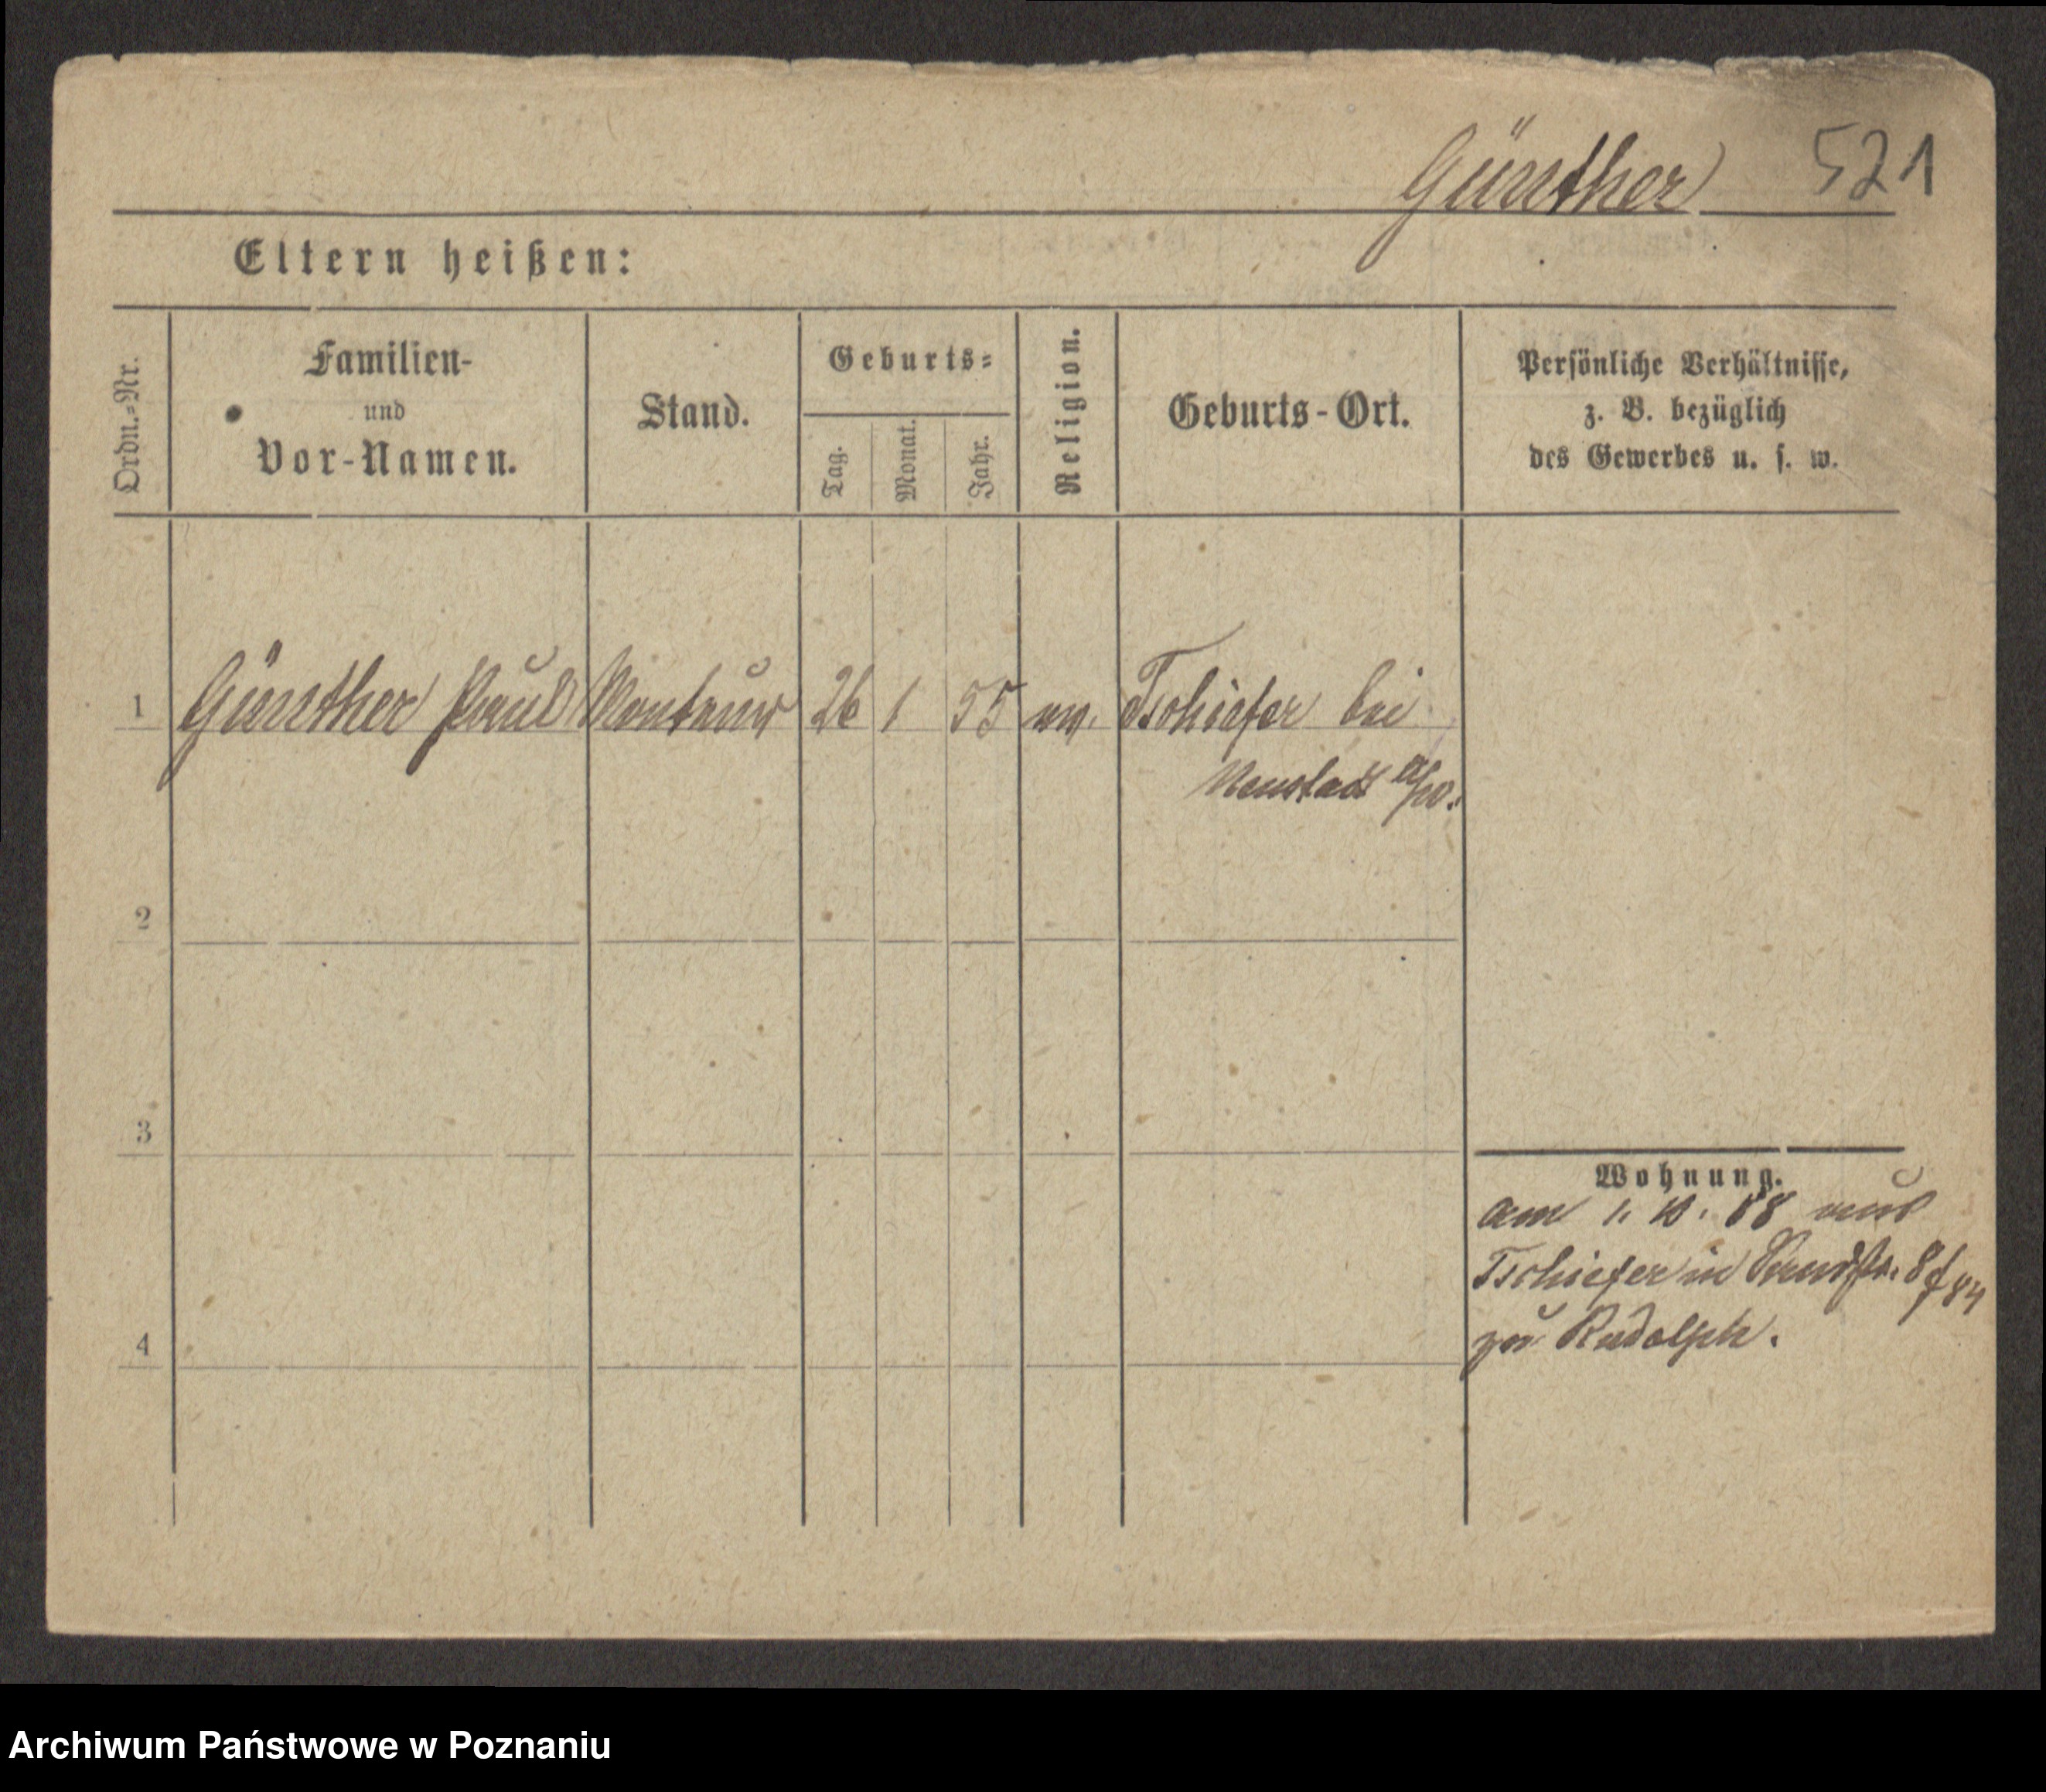 Günther 521
Eltern heißen:
Ordn.-Nr.
Familien-
und
Vor-Namen.
Stand.
Geburts-
Tag.
Monat.
Jahr.
Religion.
Geburts-Ort.
Persönliche Verhältnisse,
z. B. bezüglich
des Gewerbes u. s. w.
1 Günther Paul Monteur 26 1 55 ev. Tschiefer bei
Neustadt
2
3
4
Wohnung.
am 1. 10. 88 aus
Tschiefer in
zu Rudolph.
Archiwum Państwowe w Poznaniu